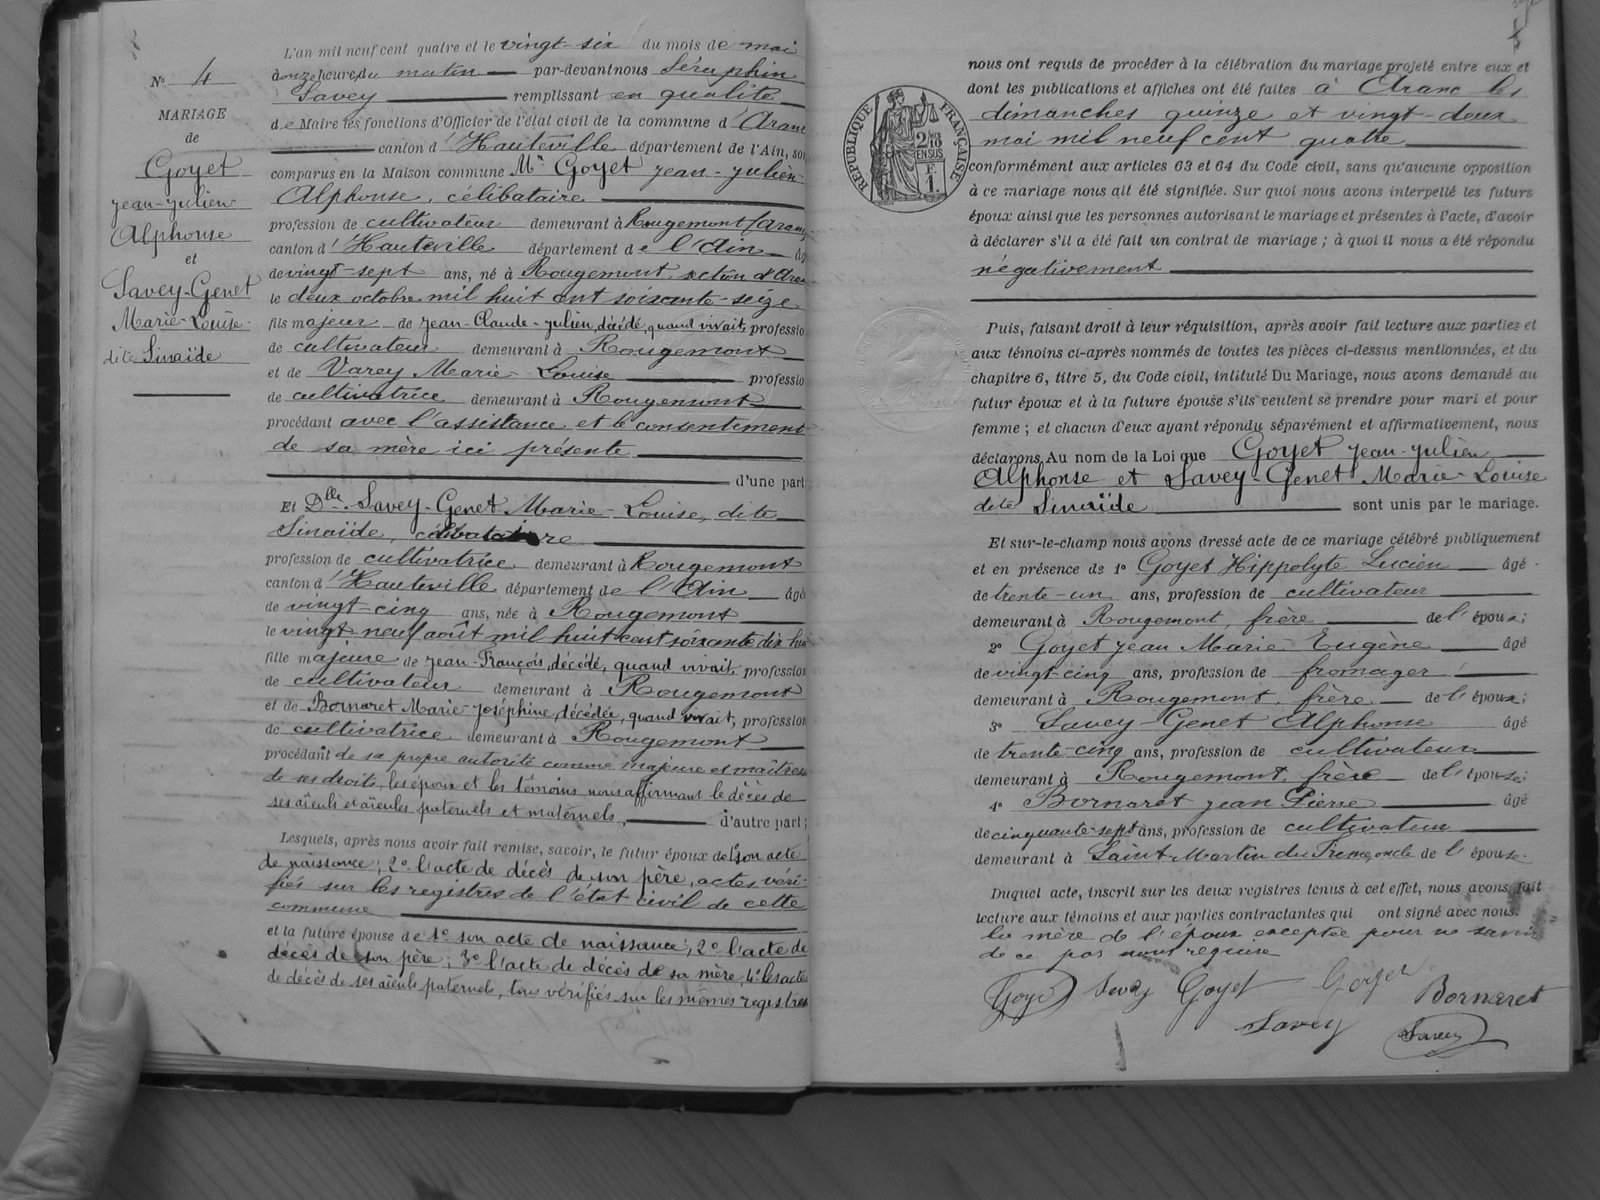 N° 4
MARIAGE
de
Goyet
Jean-Julien
Alphonse
et
Savey-Genet
Marie-Louise
dite Sinaïde
L'an mil neuf cent quatre et le vingt-six du mois de mai
à onze heures du matin par-devant nous Séraphin
Savey remplissant en qualité
de Maire les fonctions d'Officier de l'état civil de la commune d'Aranc
canton d'Hauteville département de l'Ain, sont
comparus en la Maison commune Mr Goyet Jean-Julien-
Alphonse, célibataire
profession de cultivateur demeurant à Rougemont (Aranc)
canton d'Hauteville département de l'Ain
de vingt-sept ans, né à Rougemont section d'Aranc
le deux octobre mil huit cent soixante-seize
fils majeur de Jean-Claude-Julien, décédé, quand vivait, profession
de cultivateur demeurant à Rougemont
et de Varey Marie-Louise profession
de cultivatrice demeurant à Rougemont
procédant avec l'assistance et le consentement
de sa mère ici présente
d'une part
Et Dlle Savey-Genet Marie-Louise, dite
Sinaïde, célibataire
profession de cultivatrice demeurant à Rougemont
canton d'Hauteville département de l'Ain âgé
de vingt-cinq ans, née à Rougemont
le vingt-neuf août mil huit cent soixante dix-huit
fille majeure de Jean-François, décédé, quand vivait, profession
de cultivateur demeurant à Rougemont
et de Bornaret Marie-Joséphine, décédée, quand vivait, profession
de cultivatrice demeurant à Rougemont
procédant de sa propre autorité comme majeure et maîtresse
de ses droits, les époux et les témoins nous affirmant le décès de
ses aïeuls et aïeules paternels et maternels, d'autre part;
Lesquels, après nous avoir fait remise, savoir, le futur époux de 1° son acte
de naissance; 2° l'acte de décès de son père, actes véri-
fiés sur les registres de l'état civil de cette
commune
et la future épouse de 1° son acte de naissance; 2° l'acte de
décès de son père; 3° l'acte de décès de sa mère, 4° les actes
de décès de ses aïeuls paternels, tous vérifiés sur les mêmes registres
RÉPUBLIQUE FRANÇAISE
nous ont requis de procéder à la célébration du mariage projeté entre eux et
dont les publications et affiches ont été faites à Aranc les
dimanches quinze et vingt-deux
mai mil neuf cent quatre
conformément aux articles 63 et 64 du Code civil, sans qu'aucune opposition
à ce mariage nous ait été signifiée. Sur quoi nous avons interpellé les futurs
époux ainsi que les personnes autorisant le mariage et présentes à l'acte, d'avoir
à déclarer s'il a été fait un contrat de mariage; à quoi il nous a été répondu
négativement
Puis, faisant droit à leur réquisition, après avoir fait lecture aux parties et
aux témoins ci-après nommés de toutes les pièces ci-dessus mentionnées, et du
chapitre 6, titre 5, du Code civil, intitulé Du Mariage, nous avons demandé au
futur époux et à la future épouse s'ils veulent se prendre pour mari et pour
femme; et chacun d'eux ayant répondu séparément et affirmativement, nous
déclarons, Au nom de la Loi que Goyet Jean-Julien
Alphonse et Savey-Genet Marie-Louise
dite Sinaïde sont unis par le mariage.
Et sur-le-champ nous avons dressé acte de ce mariage célébré publiquement
et en présence de 1° Goyet Hippolyte Lucien âgé
de trente-un ans, profession de cultivateur
demeurant à Rougemont, frère de l'époux;
2° Goyet Jean Marie Eugène âgé
de vingt-cinq ans, profession de fromager
demeurant à Rougemont, frère de l'époux;
3° Savey-Genet Alphonse âgé
de trente-cinq ans, profession de cultivateur
demeurant à Rougemont, frère de l'épouse;
4° Bornaret Jean Pierre âgé
de cinquante-sept ans, profession de cultivateur
demeurant à Saint-Martin du de l'épouse.
Duquel acte, inscrit sur les deux registres tenus à cet effet, nous avons fait
lecture aux témoins et aux parties contractantes qui ont signé avec nous.
la mère de l'époux exceptée pour ne savoir
de ce par nous requise
Goyet Savey Goyet Goyet Bornaret
Savey Savey